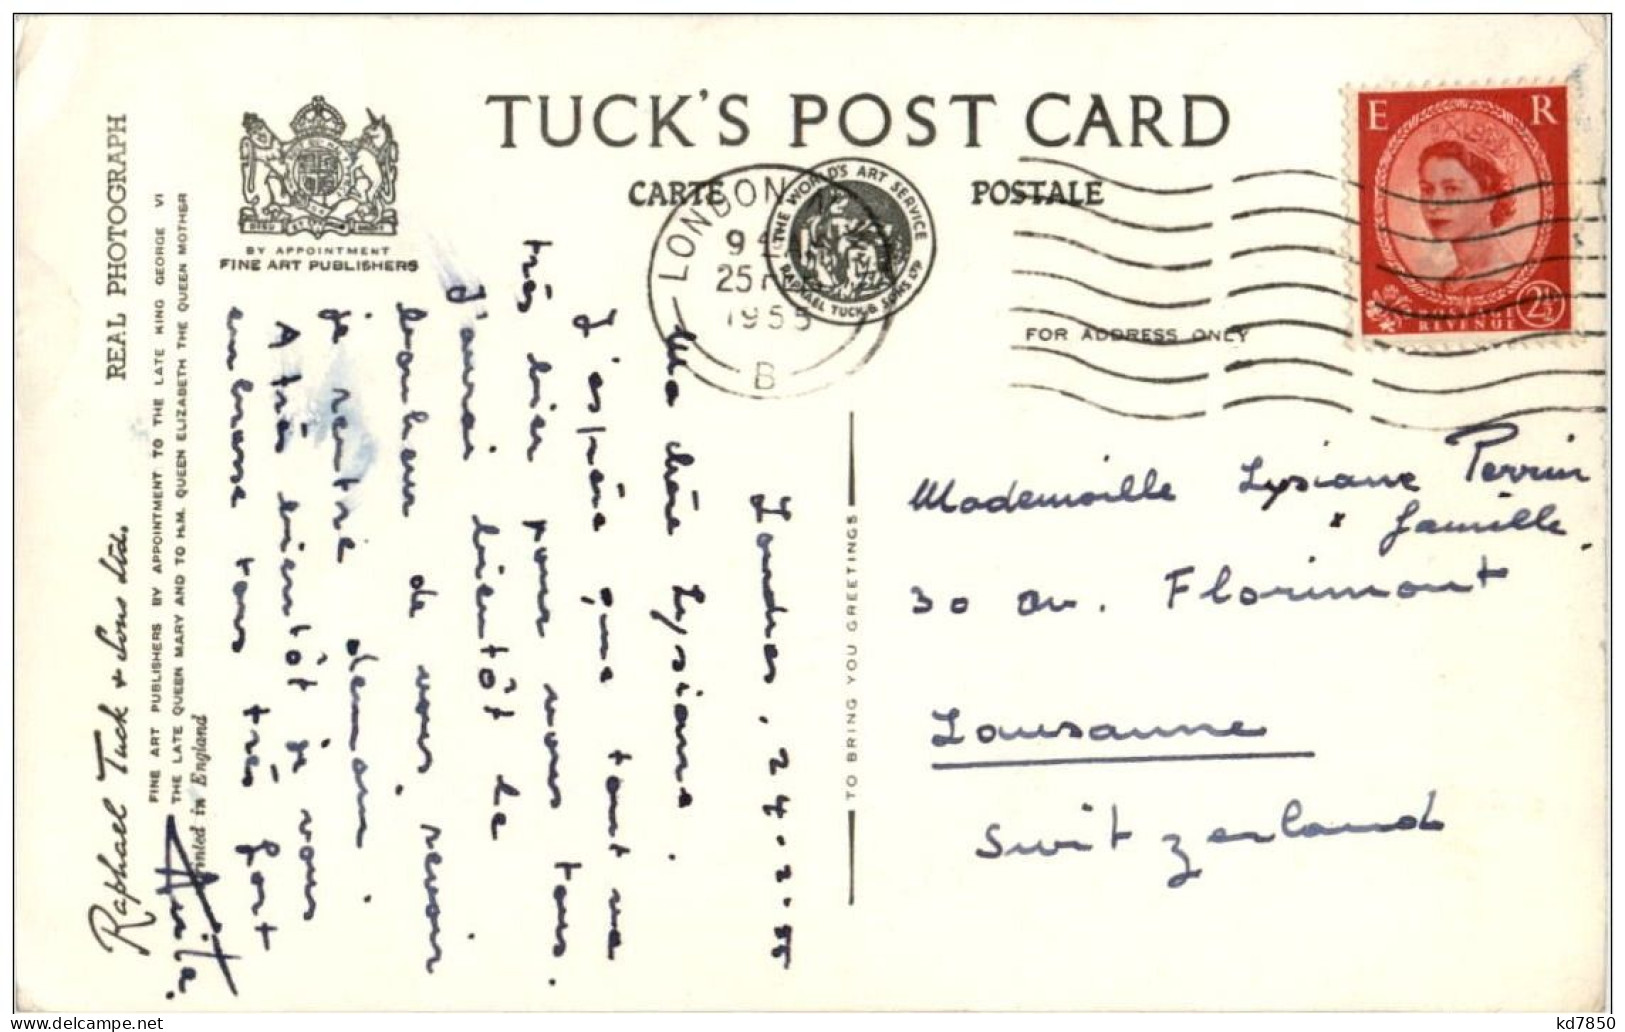 TUCK'S POST CARD
CARTE POSTALE
BY APPOINTMENT
FINE ART PUBLISHERS
LONDON
9
25
1955
B
THE WORLD'S ART SERVICE
RAPHAEL TUCK & SONS LTD
E R
REVENUE
2½
FOR ADDRESS ONLY
REAL PHOTOGRAPH
Raphael Tuck & Sons Ltd.
FINE ART PUBLISHERS BY APPOINTMENT TO THE LATE KING GEORGE VI
THE LATE QUEEN MARY AND TO H.M. QUEEN ELIZABETH THE QUEEN MOTHER
Printed in England
TO BRING YOU GREETINGS
Londres, 24.2.55
Ma chère Lysiane.
J'espère que tout va
très bien pour vous tous.
J'aurai bientôt le
bonheur de vous revoir
je rentre demain.
A très bientôt je vous
embrasse tous très fort
Anita.
Mademoiselle Lysiane Perrin
famille
30 av. Florimont
Lausanne
Switzerland
kd7850